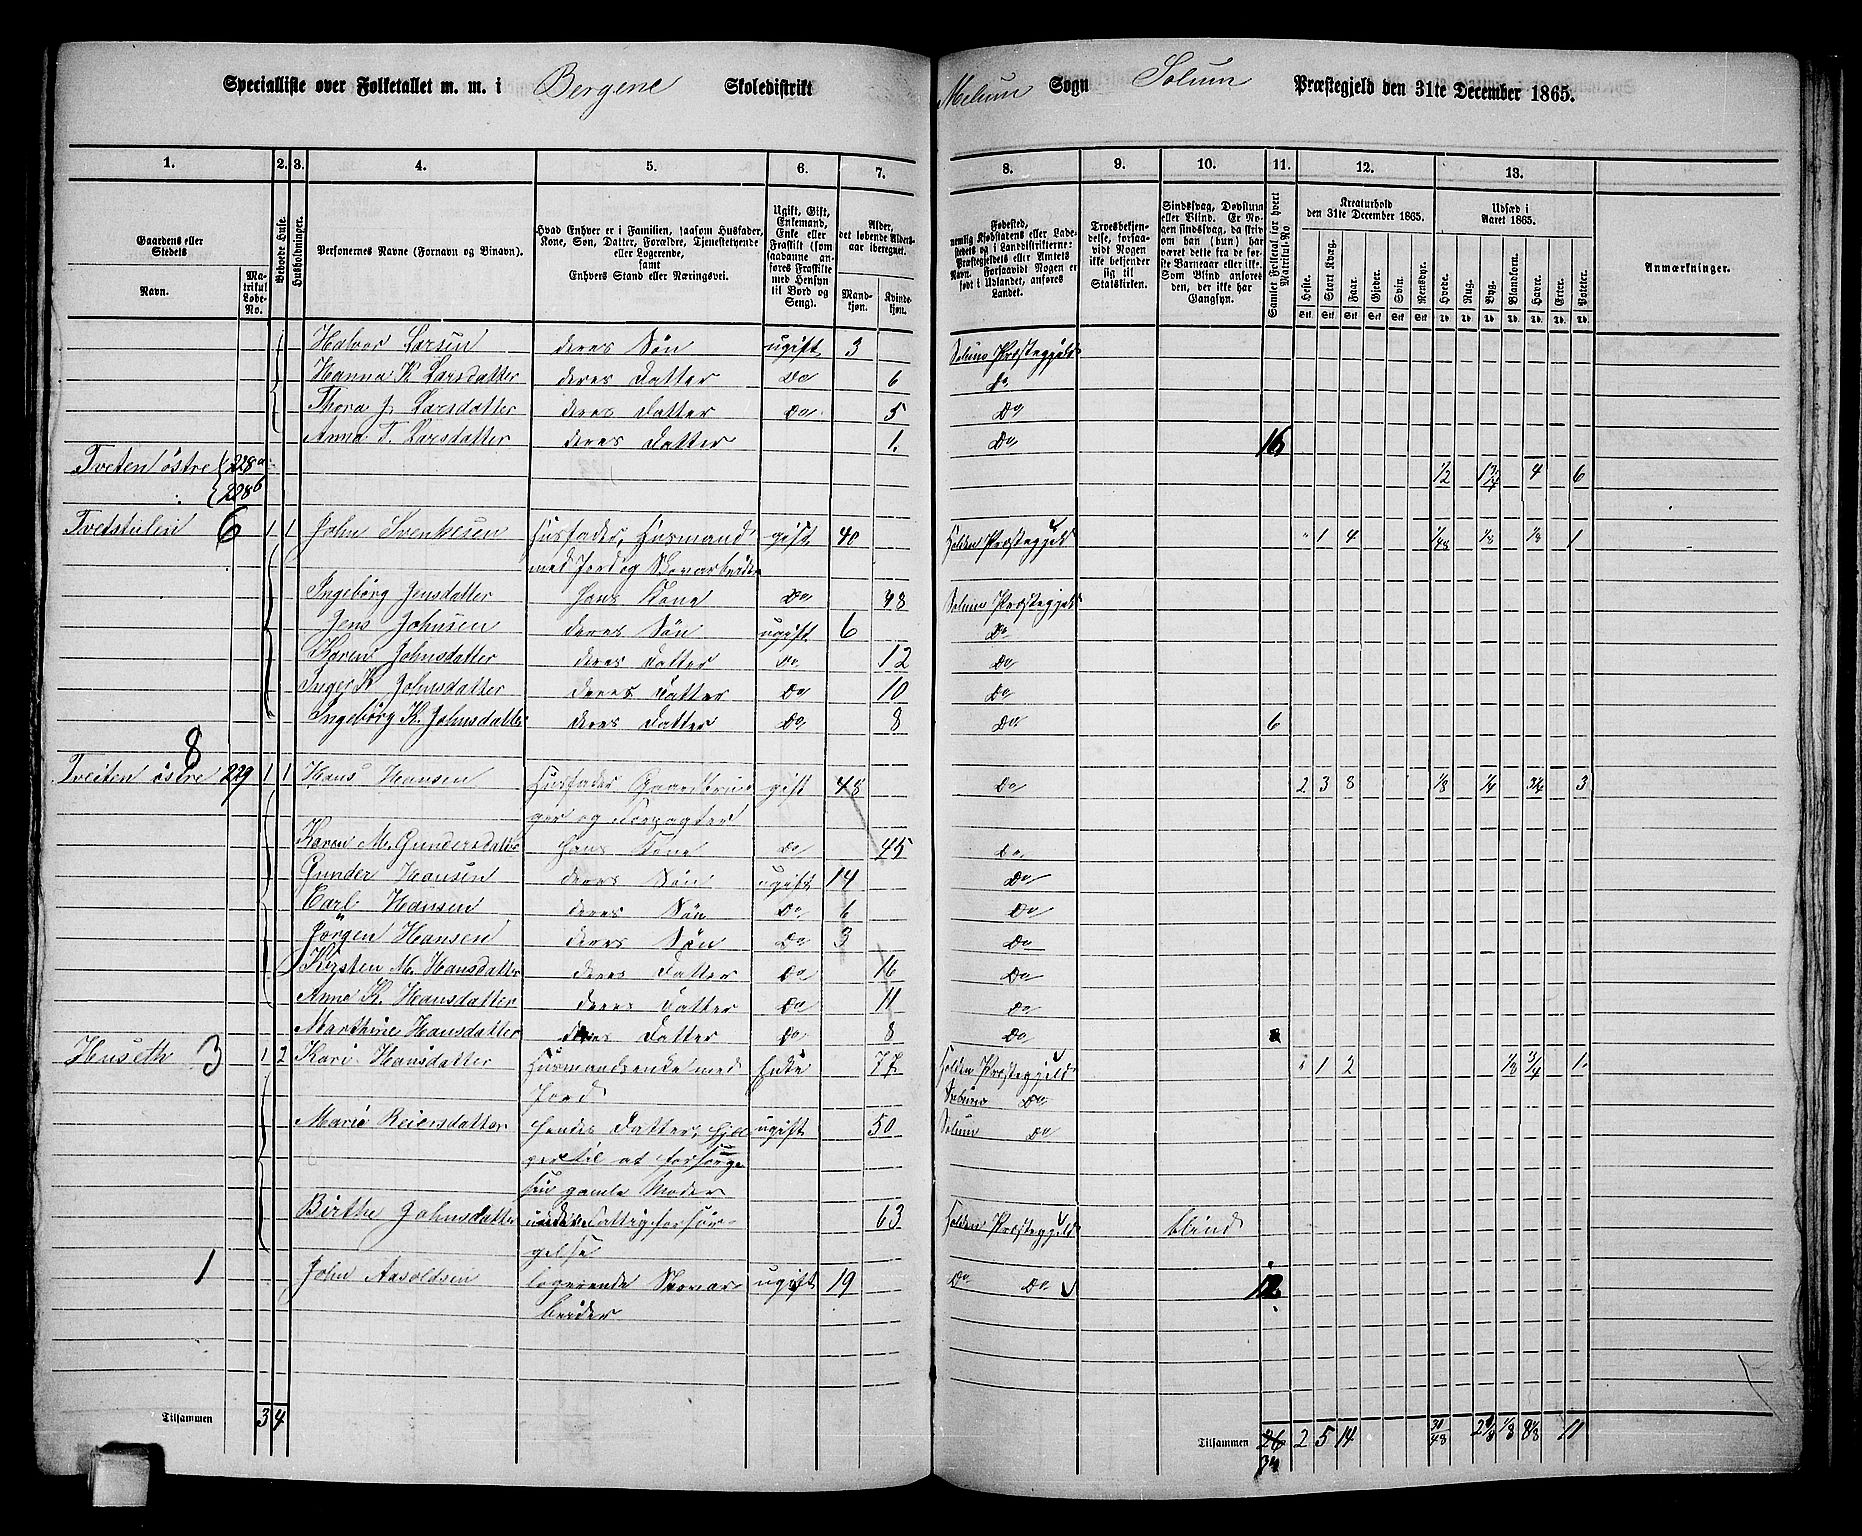 Specialliste over Folketallet m. m. i Bergene Skoledistrikt Melum Sogn Solum Præstegjeld den 31te December 1865.
1. 2. 3. 4. 5. 6. 7. 8. 9. 10. 11. 12. 13.
Gaardens eller Stedets
Navn.
Matrikul Løbe-No.
Beboede Huse.
Husholdninger.
Personernes Navne (Fornavn og Binavn).
Hvad Enhver er i Familien, saasom Husfader, Kone, Søn, Datter, Forældre, Tjenestetyende eller Logerende, samt Enhvers Stand eller Næringsvei.
Ugift, Gift, Enkemand, Enke eller Fraskilt (som saadanne anføres Fraskilte med Hensyn til Bord og Seng).
Alder, det løbende Aldersaar iberegnet.
Mandkjøn. Kvindekjøn.
Fødested, nemlig Kjøbstadens eller Ladestedets og i Landdistrikterne: Præstegjeldets eller Amtets Navn. Forsaavidt Nogen er født i Udlandet, anføres Landet.
Troesbekjendelse, forsaavidt Nogen ikke bekjender sig til Statskirken.
Sindssvag, Døvstum eller Blind. Er Nogen sindssvag, da skriv om han (hun) har været dette fra de første Barneaar eller ikke. Som Blind ansøres den, der ikke har Gangsyn.
Samlet Folketal for hvert Matrikul-No
Kreaturhold den 31te December 1865.
Heste. Stort Kvæg. Faar. Gjeder. Svin. Rensdyr.
Udsæd i Aaret 1865.
Hvede. Rug. Byg. Blandkorn. Havre. Erter. Poteter.
Anmærkninger.
Halvor Larsen deres Søn ugift 3 Solum Præstegjeld
Hanna K. Larsdatter deres Datter Do 6 Do
Thora J. Larsdatter deres Datter Do 5 Do
Anna T. Larsdatter deres Datter 1. Do 16
Tveten østre 228a 1/2 4 6
228b
Tvetstulen 6 1 1 John Svenkesen Husfader, Husmand gift 40 Holden Præstegjeld " 1 4 1/48 1/8 1/8 1
med Jord og Skovarbeider
Ingebørg Jensdatter hans Kone Do 48 Solum Præstegjeld
Jens Johnsen deres Søn ugift 6 Do
Karen Johnsdatter deres Datter Do 12 Do
Inger K Johnsdatter deres Datter Do 10 Do
Ingebørg K. Johnsdatter deres Datter Do 8 Do 6
8
Tveiten østre 229 1 1 Hans Hansen Husfader Gaardbru gift 48 Do 2 3 8 1/8 1/4 3 1/4 3
ger og Forpagter
Karen M. Gundersdatter hans Kone Do 45 Do
Gunder Hansen deres Søn ugift 14 Do
Carl Hansen deres Søn Do 6 Do
Jørgen Hansen deres Søn Do 3 Do
Kirsten M. Hansdatter deres Datter Do 16 Do
Anne K. Hansdatter deres Datter Do 11 Do
Marthine Hansdatter deres Datter Do 8 Do
Huseth 3 1 2 Kari Hansdatter Husmandsenke med Enke 77 Holden Præstegjeld 1 2 1/8 3/4 1
Jord
Marie Reiersdatter hendes Datter, hjel ugift 50 Solum Do
per til at forsørge
sin gamle Moder
Birthe Johnsdatter under Fattigforsør- 63 Holden Præstegjeld blind
gelse
1 John Aasoldsen logerende Skovar- ugift 19 Do Do 12
beider
Tilsammen 3 4 Tilsammen 26 2 5 14 30/48 2 1/8 1/8 8 1/8 11
34